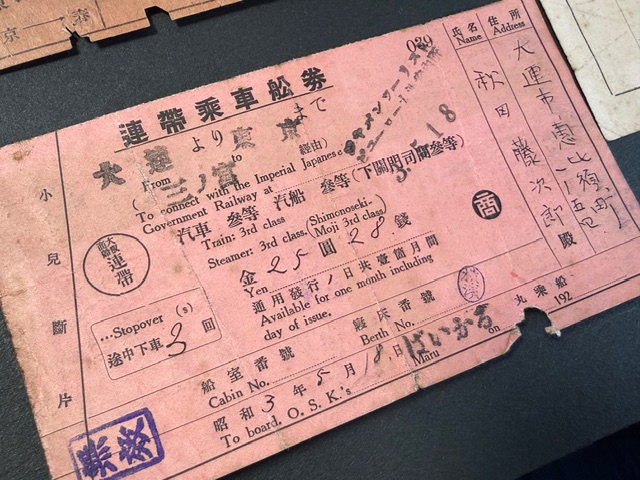 039
氏名
Name
住所
Address
連帶乘車舩劵
大連 より 東京 まで
From to
三ノ宮
經由)
To connect with the Imperial Japanese
Government Railway at
汽車 參等 汽船 參等 (下關門司間參等)
Train: 3rd class
Steamer: 3rd class. (Shimonoseki-
Moji 3rd class)
金 25 圓 28 錢
Yen
通用發行ノ日共壹箇月間
Available for one month including
day of issue.
連帶
...Stopover (s)
途中下車 3 回
船室番號
Cabin No.
寢床番號
Berth No.
昭和 3 年 5 月 18 日 ばいかる 丸乘船
To board. O. S. K.'s Maru on 192
小兒斷片
ジャパンツーリスト
ビューロー
3. 5. 18
商
大連市惠比須町
秋田藤次郎殿